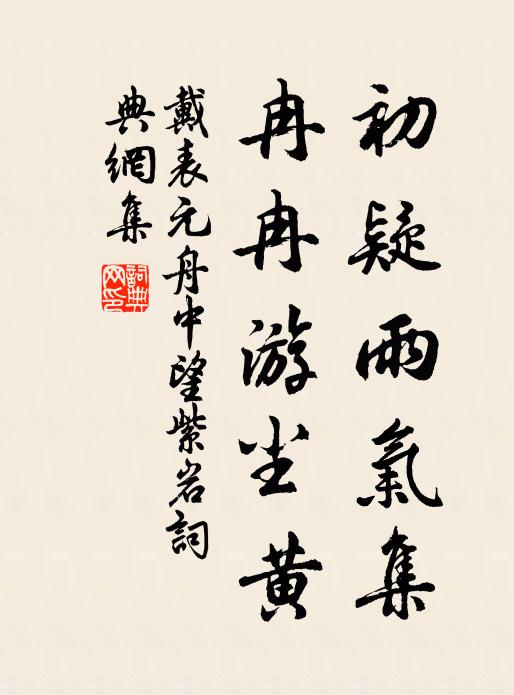 初疑雨氣集
冉冉游尘黄
戴表元舟中望紫岩詞
典網集
詞典网印